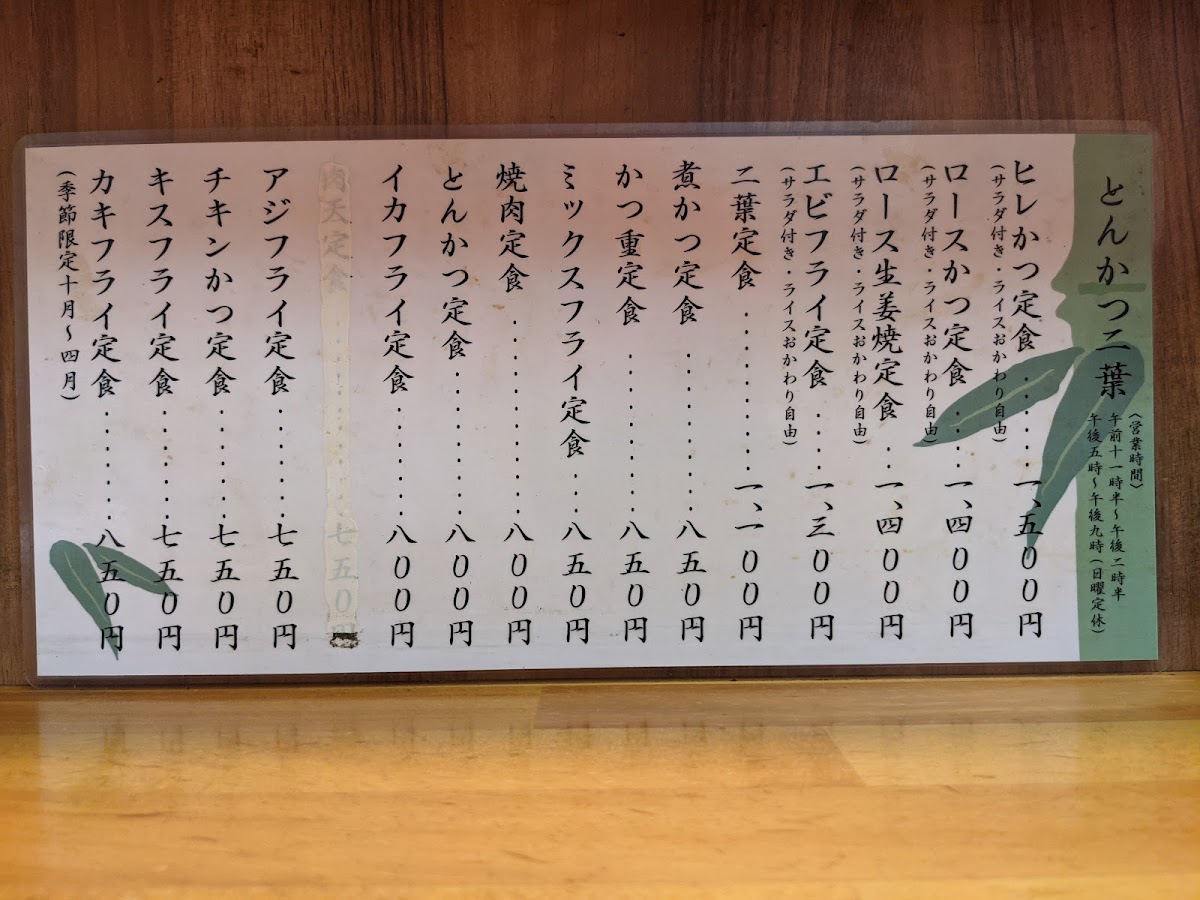 とんかつ二葉
(営業時間)
午前十一時半～午後二時半
午後五時～午後九時(日曜定休)
ヒレかつ定食........一、五〇〇円
(サラダ付き・ライスおかわり自由)
ロースかつ定食.....一、四〇〇円
(サラダ付き・ライスおかわり自由)
ロース生姜焼定食..一、四〇〇円
(サラダ付き・ライスおかわり自由)
エビフライ定食....一、三〇〇円
(サラダ付き・ライスおかわり自由)
二葉定食.........一、一〇〇円
煮かつ定食.........八五〇円
かつ重定食.........八五〇円
ミックスフライ定食...八五〇円
焼肉定食..........八〇〇円
とんかつ定食........八〇〇円
イカフライ定食......八〇〇円
肉天定食..........七五〇円
アジフライ定食......七五〇円
チキンかつ定食......七五〇円
キスフライ定食......七五〇円
カキフライ定食......八五〇円
(季節限定十月～四月)